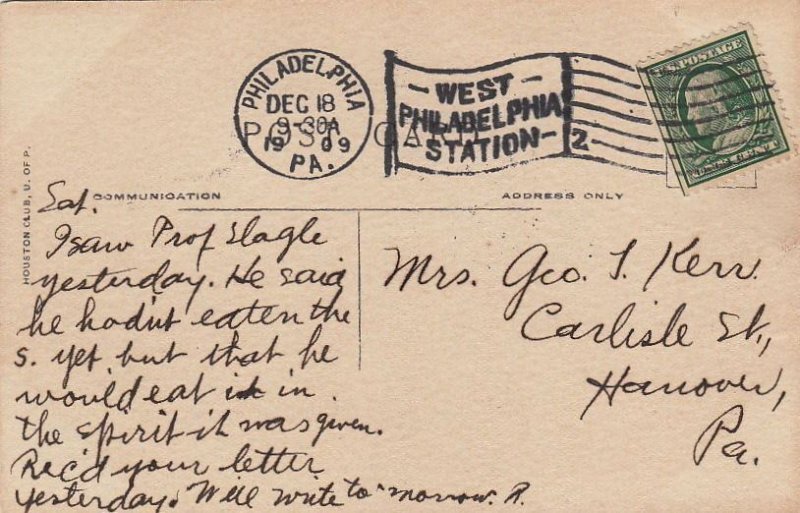 PHILADELPHIA
DEC 18
9-30A
1909
PA.
WEST
PHILADELPHIA
STATION
2
U.S. POSTAGE
POST CARD
COMMUNICATION
ADDRESS ONLY
HOUSTON CLUB, U. OF P.
Sat.
I saw Prof Slagle
yesterday. He said
he hadn't eaten the
s. yet, but that he
would eat it in
the spirit it was given.
Rec'd your letter
yesterday. Will write to-morrow. R.
Mrs. Geo. S. Kerr
Carlisle St.,
Hanover,
Pa.